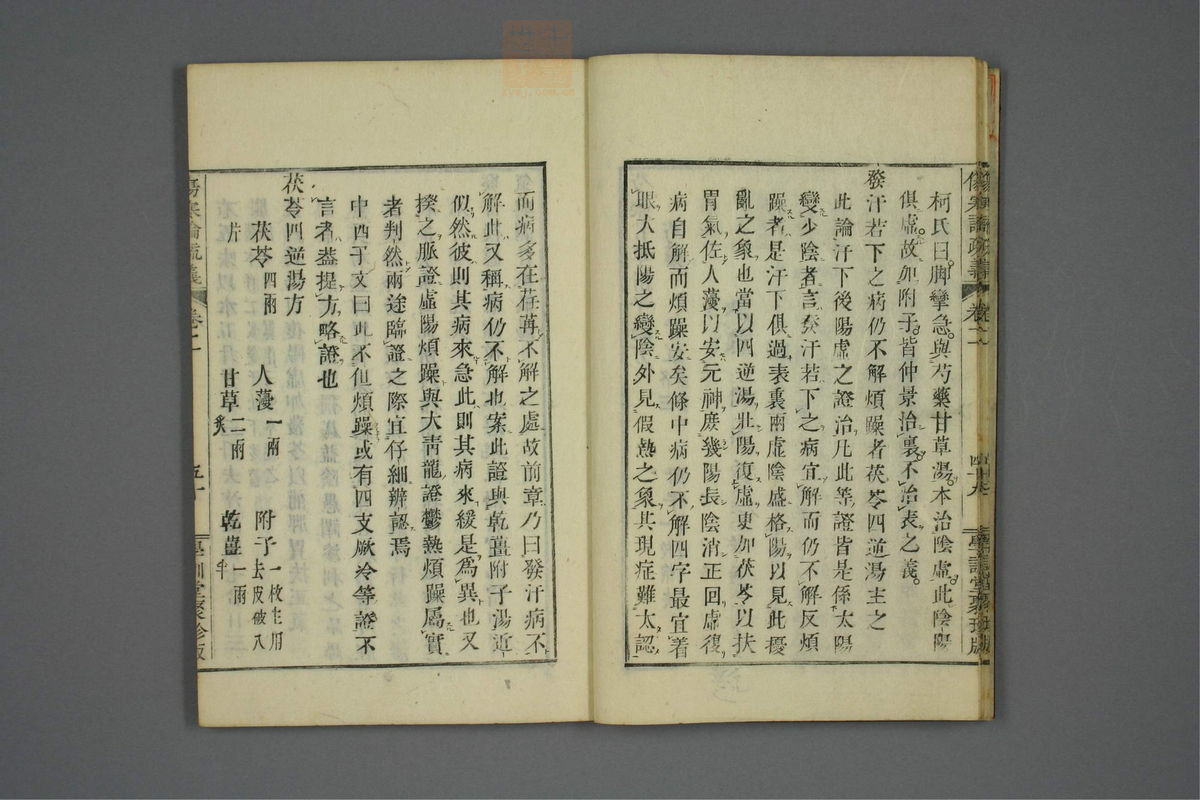 傷寒論疏義 卷二 四十九 學訓堂聚珍版
柯氏曰脚攣急與芍藥甘草湯本治陰虛此陰陽
俱虛故加附子皆仲景治裏不治表之義
發汗若下之病仍不解煩躁者茯苓四逆湯主之
此論汗下後陽虛之證治凡此等證皆是係太陽
變少陰者言發汗若下之病宜解而仍不解反煩
躁者是汗下俱過表裏兩虛陰盛格陽以見此擾
亂之象也當以四逆湯壯陽復虛更加茯苓以扶
胃氣佐人薓以安元神庶幾陽長陰消正回虛復
病自解而煩躁安矣條中病仍不解四字最宜着
眼大抵陽之變陰外見假熱之象其現症難太認
而病多在荏苒不解之處故前章乃曰發汗病不
解此又稱病仍不解也案此證與乾薑附子湯近
似然彼則其病來急此則其病來緩是爲異也又
揆之脈證虛陽煩躁與大青龍證鬱熱煩躁屬實
者判然兩途臨證之際宜仔細辨認焉
中西子文曰此不但煩躁或有四支厥冷等證不
言者蓋提方略證也
茯苓四逆湯方
茯苓四兩 人薓一兩 附子一枚生用去皮破八
片 甘草二兩炙 乾薑一兩半
傷寒論疏義 卷二 五十 學訓堂聚珍版